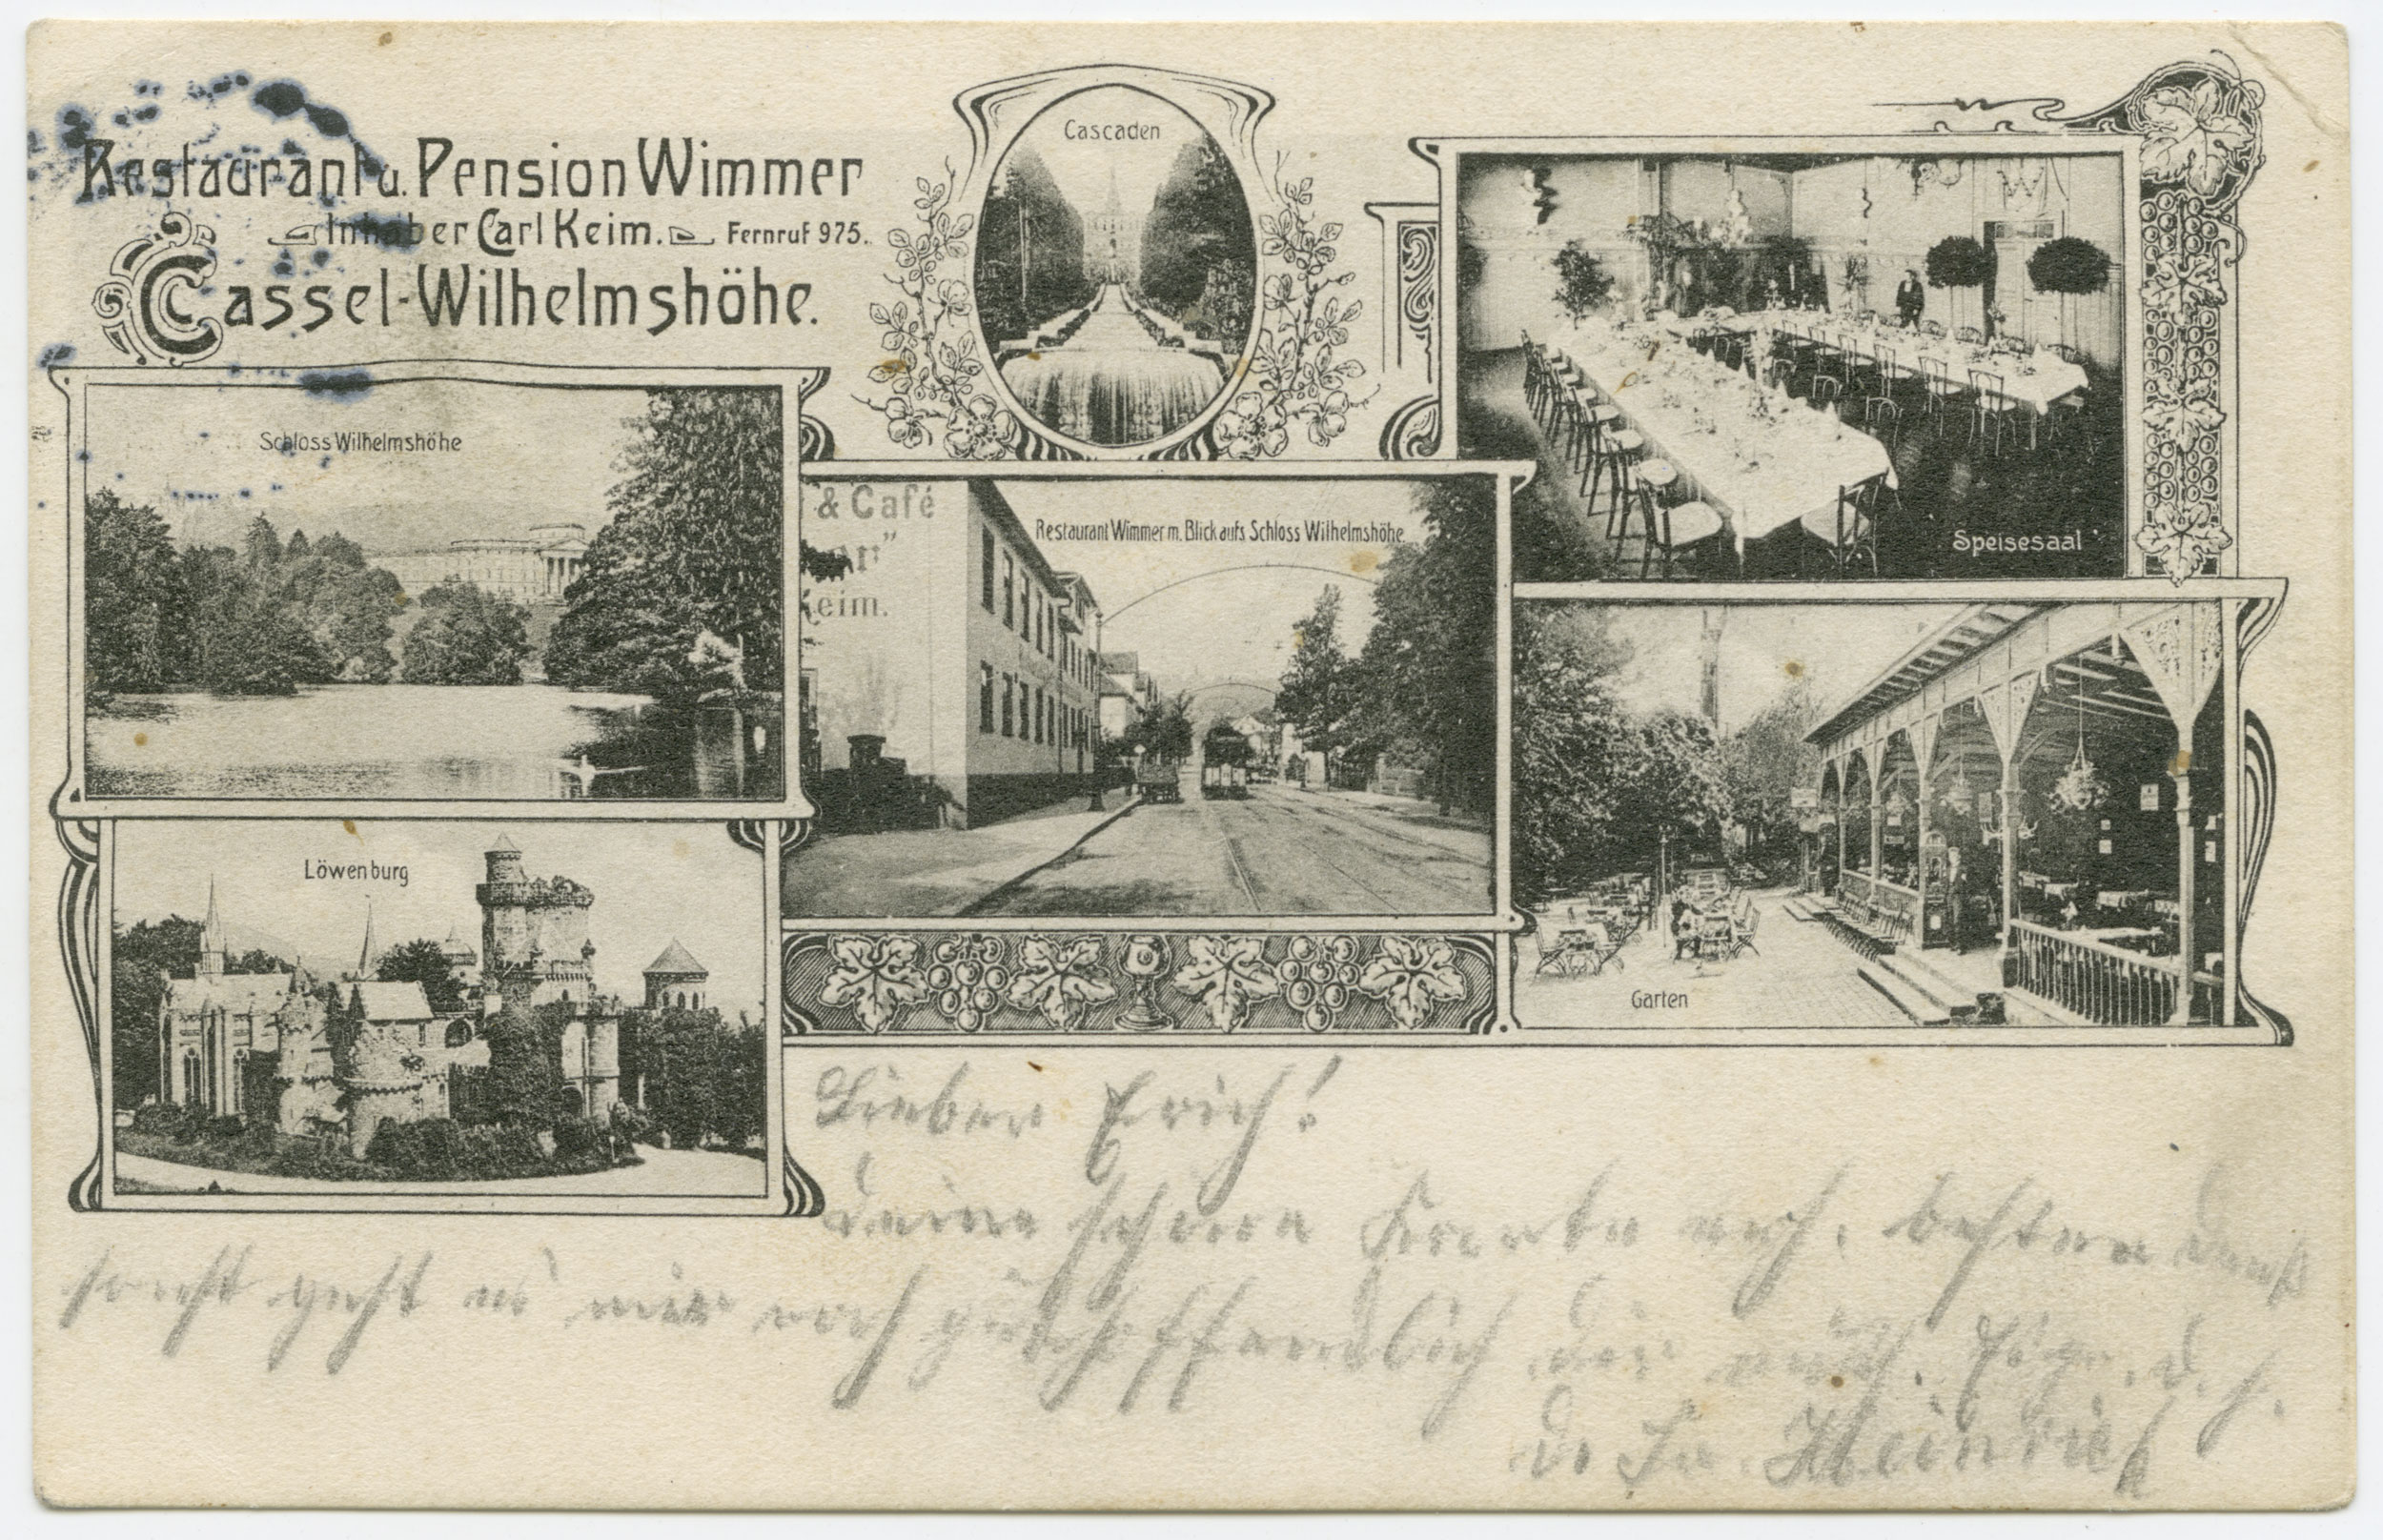 Restaurant u. Pension Wimmer
Inhaber Carl Keim. Fernruf 975.
Cassel-Wilhelmshöhe.
Cascaden
Speisesaal
Schloss Wilhelmshöhe
& Café
Keim.
Restaurant Wimmer m. Blick aufs Schloss Wilhelmshöhe.
Löwenburg
Garten
Lieber Erich!
Deine schöne Karte erh. besten Dank
sonst geht es mir noch
Heinrich